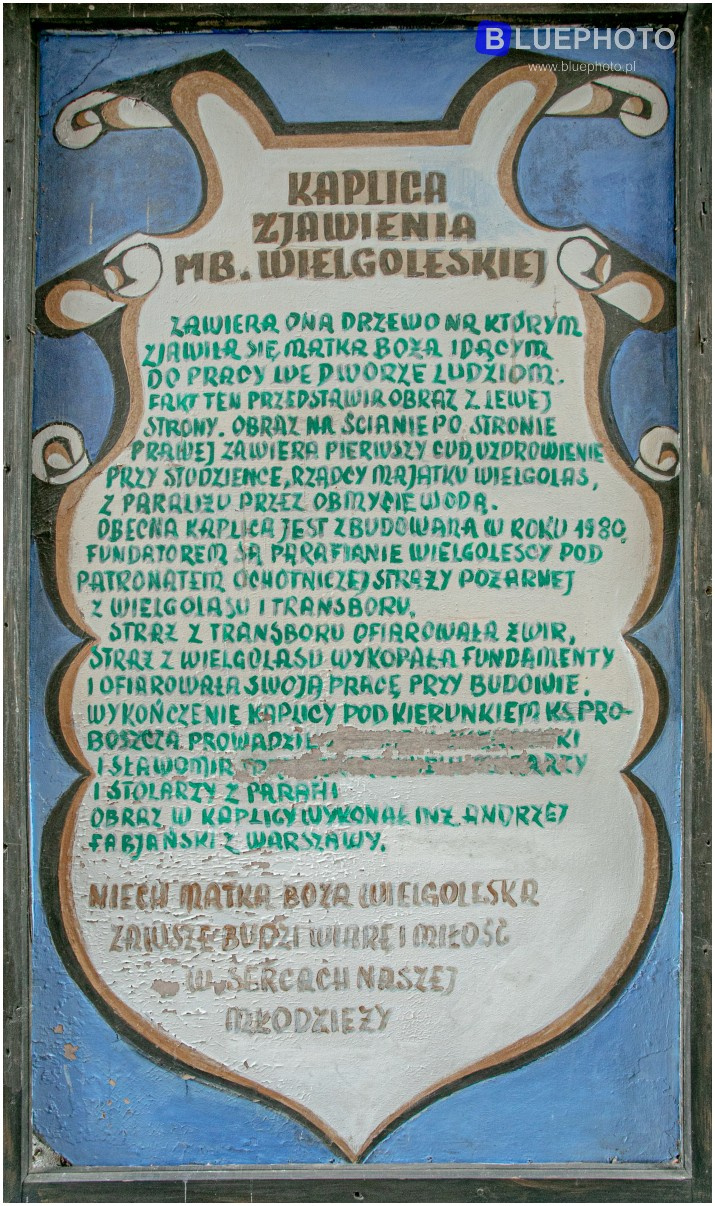 BLUEPHOTO
www.bluephoto.pl
KAPLICA
ZJAWIENIA
MB. WIELGOLESKIEJ
ZAWIERA ONA DRZEWO NA KTÓRYM
ZJAWIŁA SIĘ MATKA BOŻA IDĄCYM
DO PRACY WE DWORZE LUDZIOM.
FAKT TEN PRZEDSTAWIA OBRAZ Z LEWEJ
STRONY. OBRAZ NA ŚCIANIE PO STRONIE
PRAWEJ ZAWIERA PIERWSZY CUD, UZDROWIENIE
PRZY STUDZIENCE, RZĄDCY MAJĄTKU WIELGOLAS,
Z PARALIŻU PRZEZ OBMYCIE WODĄ.
OBECNA KAPLICA JEST ZBUDOWANA W ROKU 1980,
FUNDATOREM SĄ PARAFIANIE WIELGOLESCY POD
PATRONATEM OCHOTNICZEJ STRAŻY POŻARNEJ
Z WIELGOLASU I TRANSBORU.
STRAŻ Z TRANSBORU OFIAROWAŁA ŻWIR,
STRAŻ Z WIELGOLASU WYKOPAŁA FUNDAMENTY
I OFIAROWAŁA SWOJĄ PRACĘ PRZY BUDOWIE.
WYKOŃCZENIE KAPLICY POD KIERUNKIEM KS. PRO-
BOSZCZA PROWADZIŁ KI
I SŁAWOMIR
I STOLARZY Z PARAFII
OBRAZ W KAPLICY WYKONAŁ INŻ. ANDRZEJ
FABJAŃSKI Z WARSZAWY.
NIECH MATKA BOŻA WIELGOLESKA
ZAWSZE BUDZI WIARĘ I MIŁOŚĆ
W SERCACH NASZEJ
MŁODZIEŻY